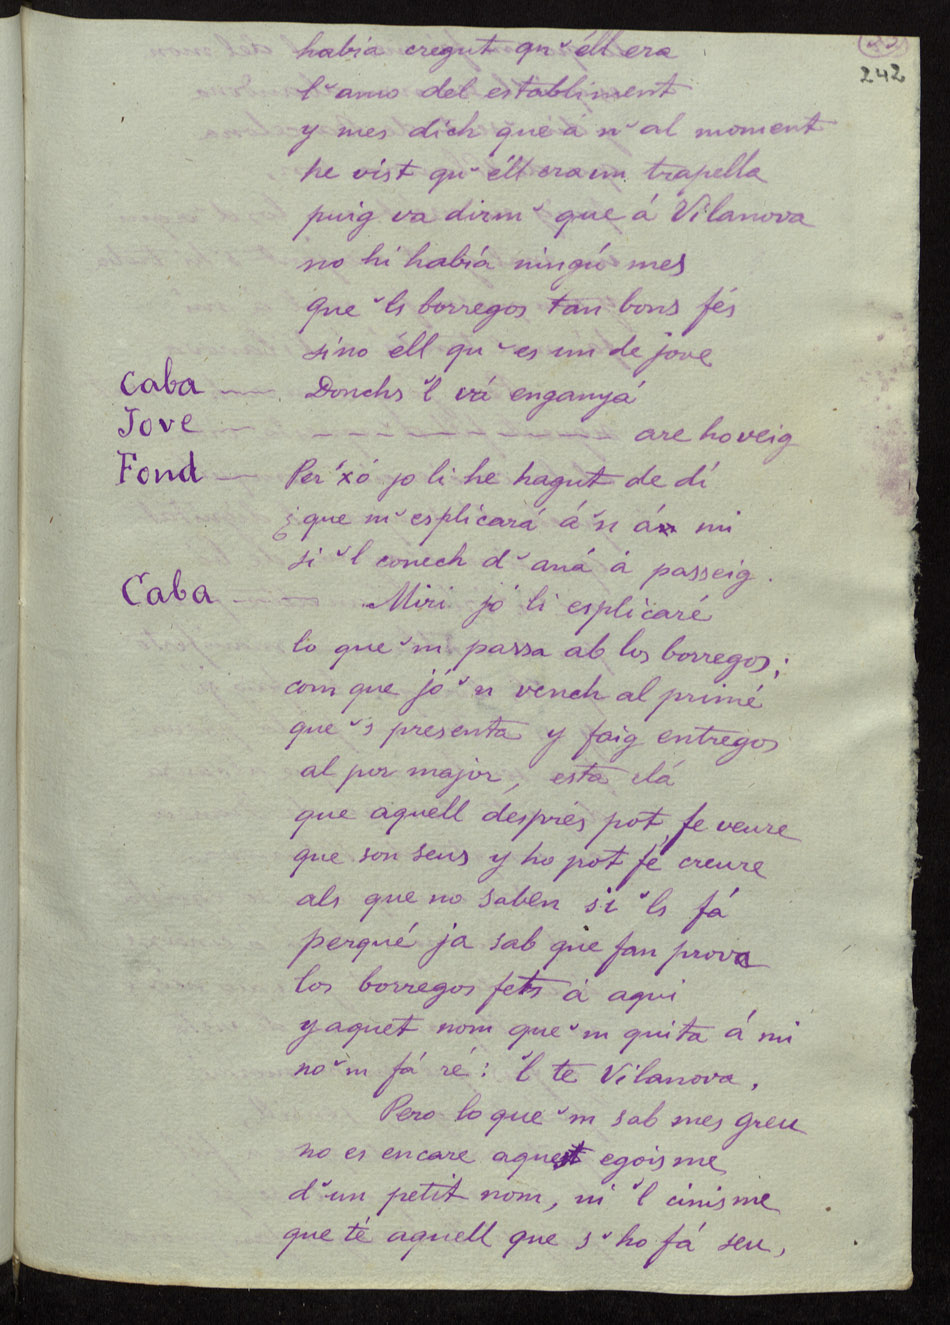 242
habia cregut qu' éll era
l' amo del establiment
y mes dich que á n' al moment
he vist qu' éll era un trapella
puig va dirm' que á Vilanova
no hi habiá ningú mes
que 'ls borregos tan bons fés
sino éll qu' es un de jove
Caba — Donchs 'l vá enganyá
Jove — — — — are ho veig
Fond — Per 'xó jo li he hagut de dí
¿que m' esplicará á 'n á mi
si 'l conech d' aná á passeig.
Caba — Miri jó li esplicaré
lo que 'm passa ab los borregos;
com que jó 'n vench al primé
que 's presenta y faig entregos
al por major, esta clá
que aquell després pot fe veure
que son seus y ho pot fé creure
als que no saben si 'ls fá
perqué ja sab que fan prova
los borregos fets á aqui
y aquet nom que 'm quita á mi
no 'm fá ré: 'l te Vilanova.
Pero lo que 'm sab mes greu
no es encare aquest egoisme
d' un petit nom, ni 'l cinisme
que té aquell que s' ho fá seu,